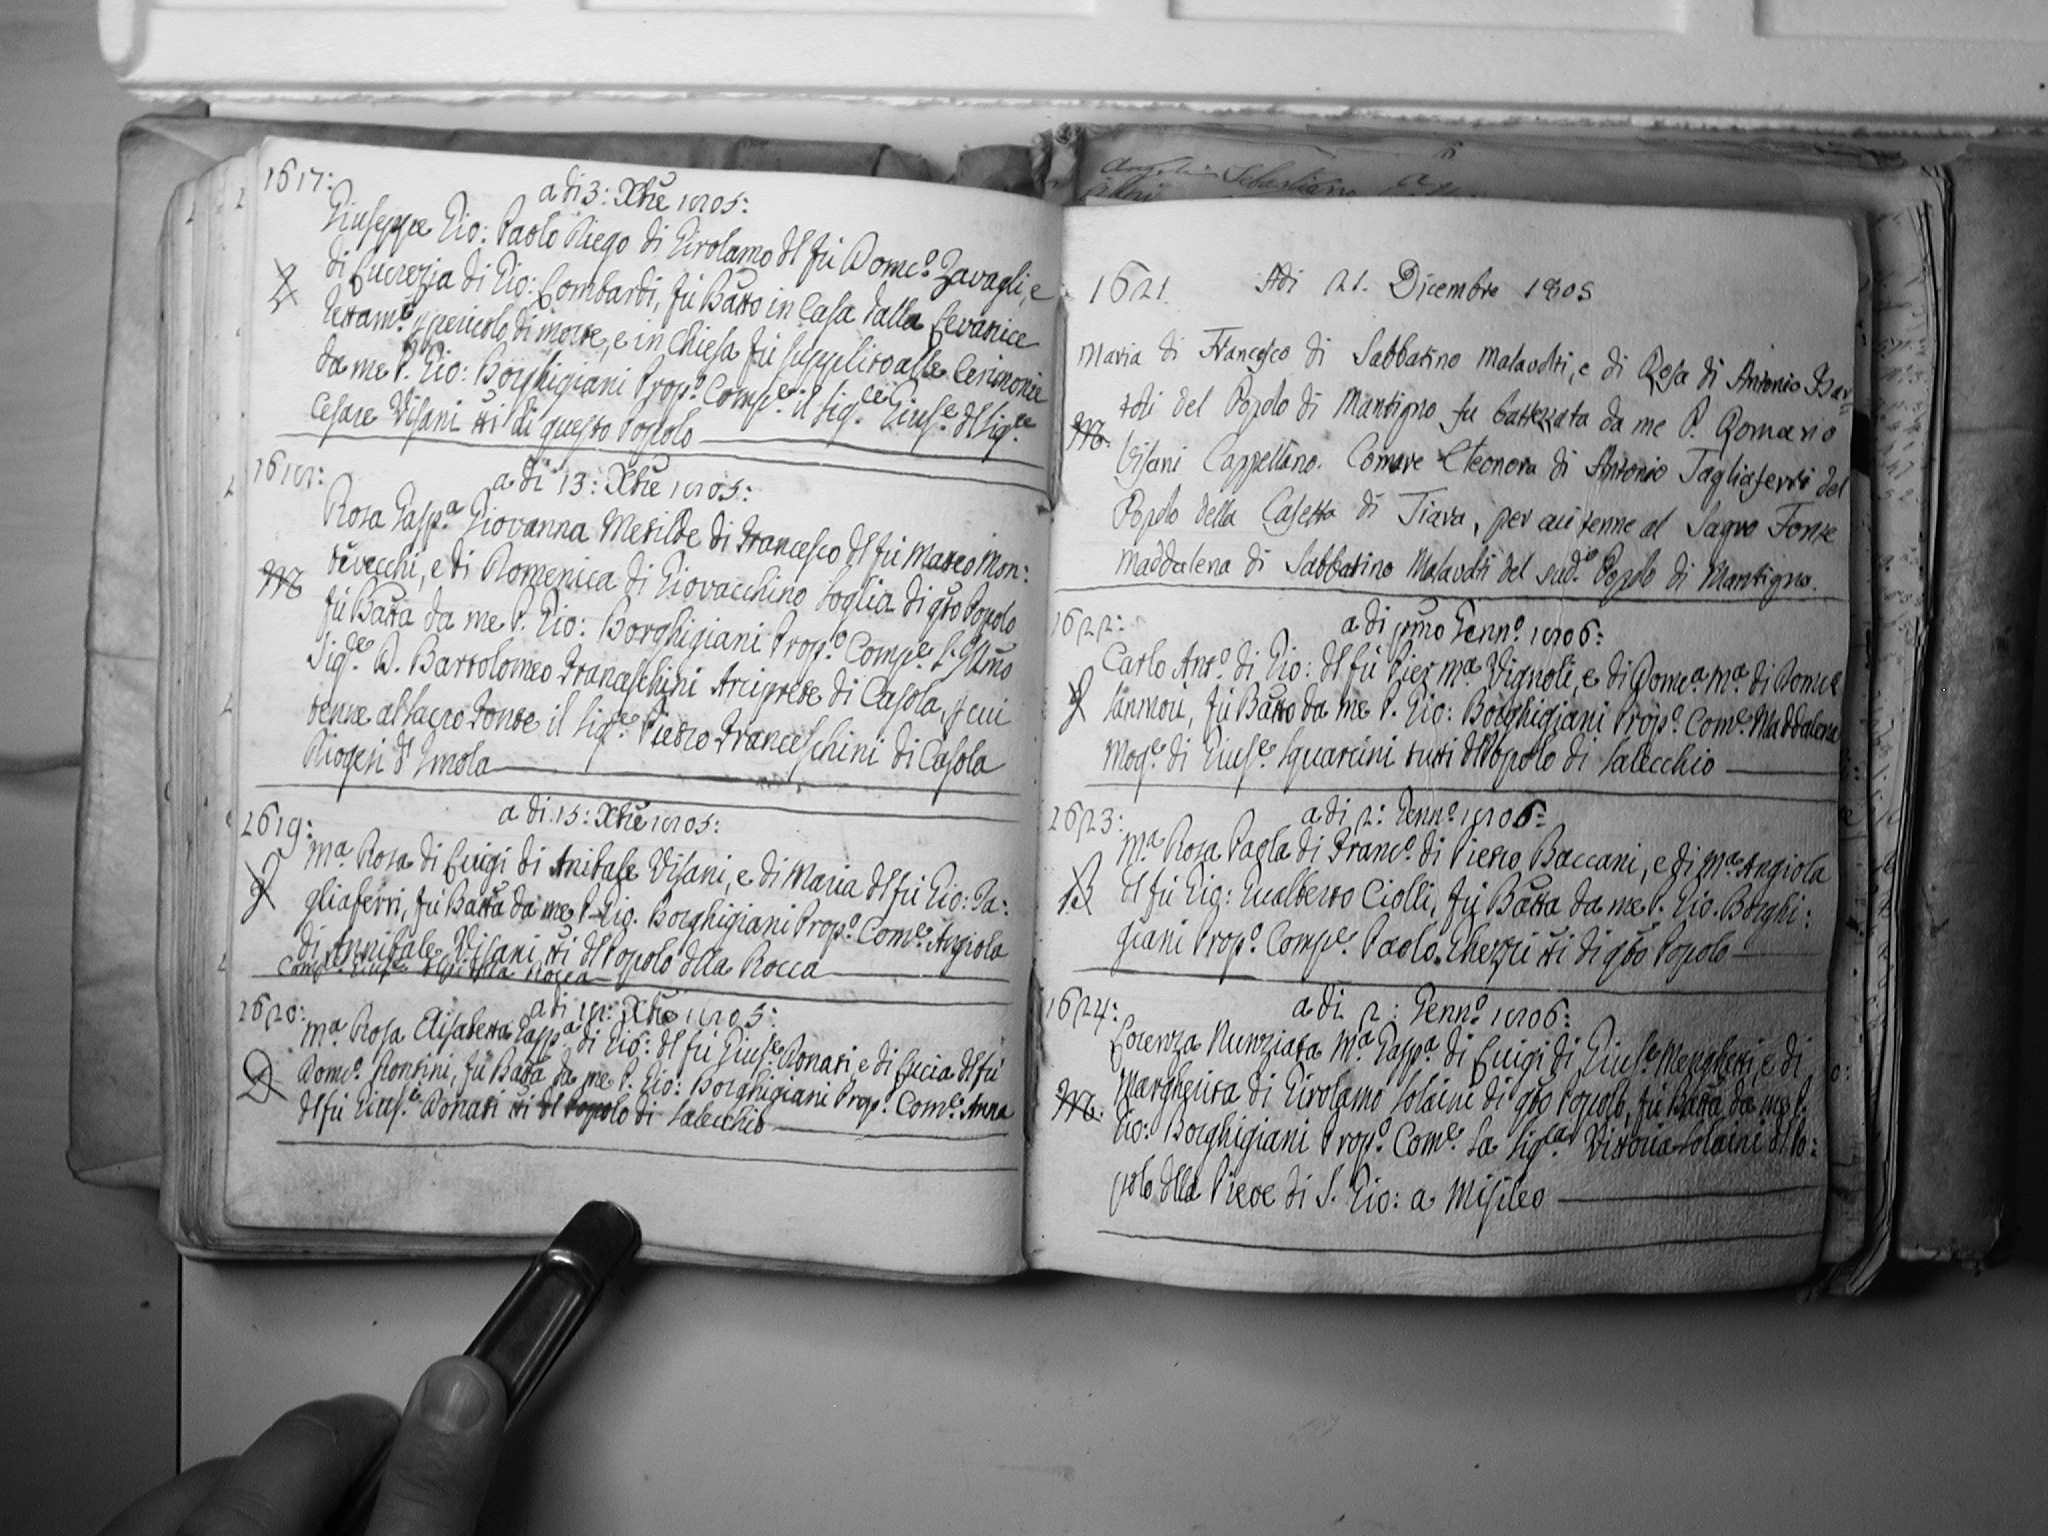 1617:
a di 3: Xbre 1805:
Giuseppe Gio: Paolo Diego di Girolamo dl fù Domco. Zavagli, e
di Lucrezia di Gio: Lombardi, fù Batto in Casa dalla Levatrice
Z
pericolo di morte, e in Chiesa fù supplito alle Cerimonie
da me P. Gio: Borghigiani Propo. Compe. il Sigre. Giuse. dl Sigre.
Cesare Visani tti di questo Popolo
1618:
a di 13: Xbre 1805:
Rosa Gaspa. Giovanna Metilde di Francesco dl fù Matteo Mon:
M
tevecchi, e di Domenica di Giovacchino Soglia di qto Popolo
fù Batta da me P. Gio: Borghigiani Propo. Compe. l'Illmo
Sigre. D. Bartolomeo Franceschini Arciprete di Casola, p cui
tenne al sacro Fonte il Sigre. Pietro Franceschini di Casola
Diogesi d'Imola
1619:
a di 15: Xbre 1805:
Ma. Rosa di Luigi di Anibale Visani, e di Maria dl fù Gio: Ta:
gliaferri, fù Batta da me P. Gio. Borghigiani Propo. Come. Angiola
di Annibale Visani tti dl Popolo dlla Rocca
Rocca
1620:
a di 18: Xbre 1805:
Ma. Rosa Elisabetta Gaspa. di Gio: dl fù Giuse. Donati e di Lucia dl fù
D
Domco. Rontini, fù Batta da me P. Gio: Borghigiani Propo. Come. Anna
dl fù Giuse. Donati tti dl Popolo di Salecchio
1621.
Adi 21. Dicembre 1805
Maria di Francesco di Sabbatino Malavolti, e di Rosa di Antonio Bar-
toli del Popolo di Mantigno fu battezzata da me P. Romano
M.
Visani Cappellano. Comare Eleonora di Antonio Tagliaferri del
Popolo della Casetta di Tiara, per cui tenne al Sagro Fonte
Maddalena di Sabbatino Malavolti del sudo. Popolo di Mantigno.
1622:
a di pmo Genno. 1806:
Carlo Anto. di Gio: dl fù Pier Ma. Vignoli, e di Domca. Ma. di Domco
fù Batto da me P. Gio: Borghigiani Propo. Come. Maddalena
Moge. di Giuse. Squarcini tutti dl Popolo di Salecchio
1623:
a di 2: Genno. 1806:
Ma. Rosa Paola di Franco. di Pietro Baccani, e di Ma. Angiola
B
dl fù Gio: Gualberto Ciolli, fù Batta da me P. Gio. Borghi:
giani Propo. Compe. Paolo Gherzi tti di qto Popolo
1624:
a di 2: Genno. 1806:
Lorenza Nunziata Ma. Gaspa. di Luigi di Giuse. Menghetti, e di
Margherita di Girolamo Solaini di qto Popolo, fù Batta da me P.
M.
Gio: Borghigiani Propo. Come. la Sigra. Vittoria Solaini dl Po:
polo dlla Pieve di S. Gio: a Misileo